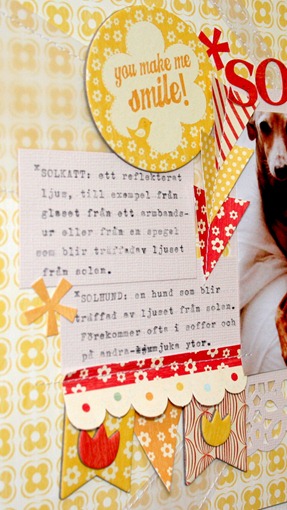 you make me
smile!
SO
*SOLKATT: ett reflekterat
ljus, till exempel från
glaset från ett armbands-
ur eller från en spegel
som blir träffadav ljuset
från solen.
*SOLHUND: en hund som blir
träffad av ljuset från solen.
Förekommer ofta i soffor och
på andra mjuka ytor.